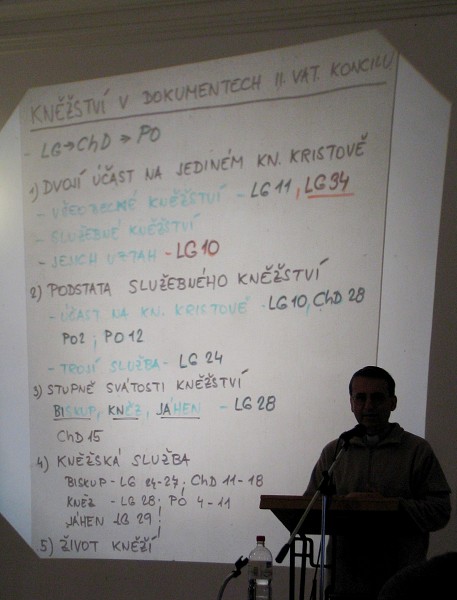 KNĚŽSTVÍ V DOKUMENTECH II. VAT. KONCILU
- LG → ChD → PO
1) DVOJÍ ÚČAST NA JEDINÉM KN. KRISTOVĚ
- VŠEOBECNÉ KNĚŽSTVÍ - LG 11, LG 34
- SLUŽEBNÉ KNĚŽSTVÍ
- JEJICH VZTAH - LG 10
2) PODSTATA SLUŽEBNÉHO KNĚŽSTVÍ
- ÚČAST NA KN. KRISTOVĚ - LG 10, ChD 28
PO 2 ; PO 12
- TROJÍ SLUŽBA - LG 24
3) STUPNĚ SVÁTOSTI KNĚŽSTVÍ
BISKUP, KNĚZ, JÁHEN - LG 28
ChD 15
4) KNĚŽSKÁ SLUŽBA
BISKUP - LG 24-27; ChD 11-18
KNĚZ - LG 28; PO 4-11
JÁHEN LG 29!
5) ŽIVOT KNĚŽÍ